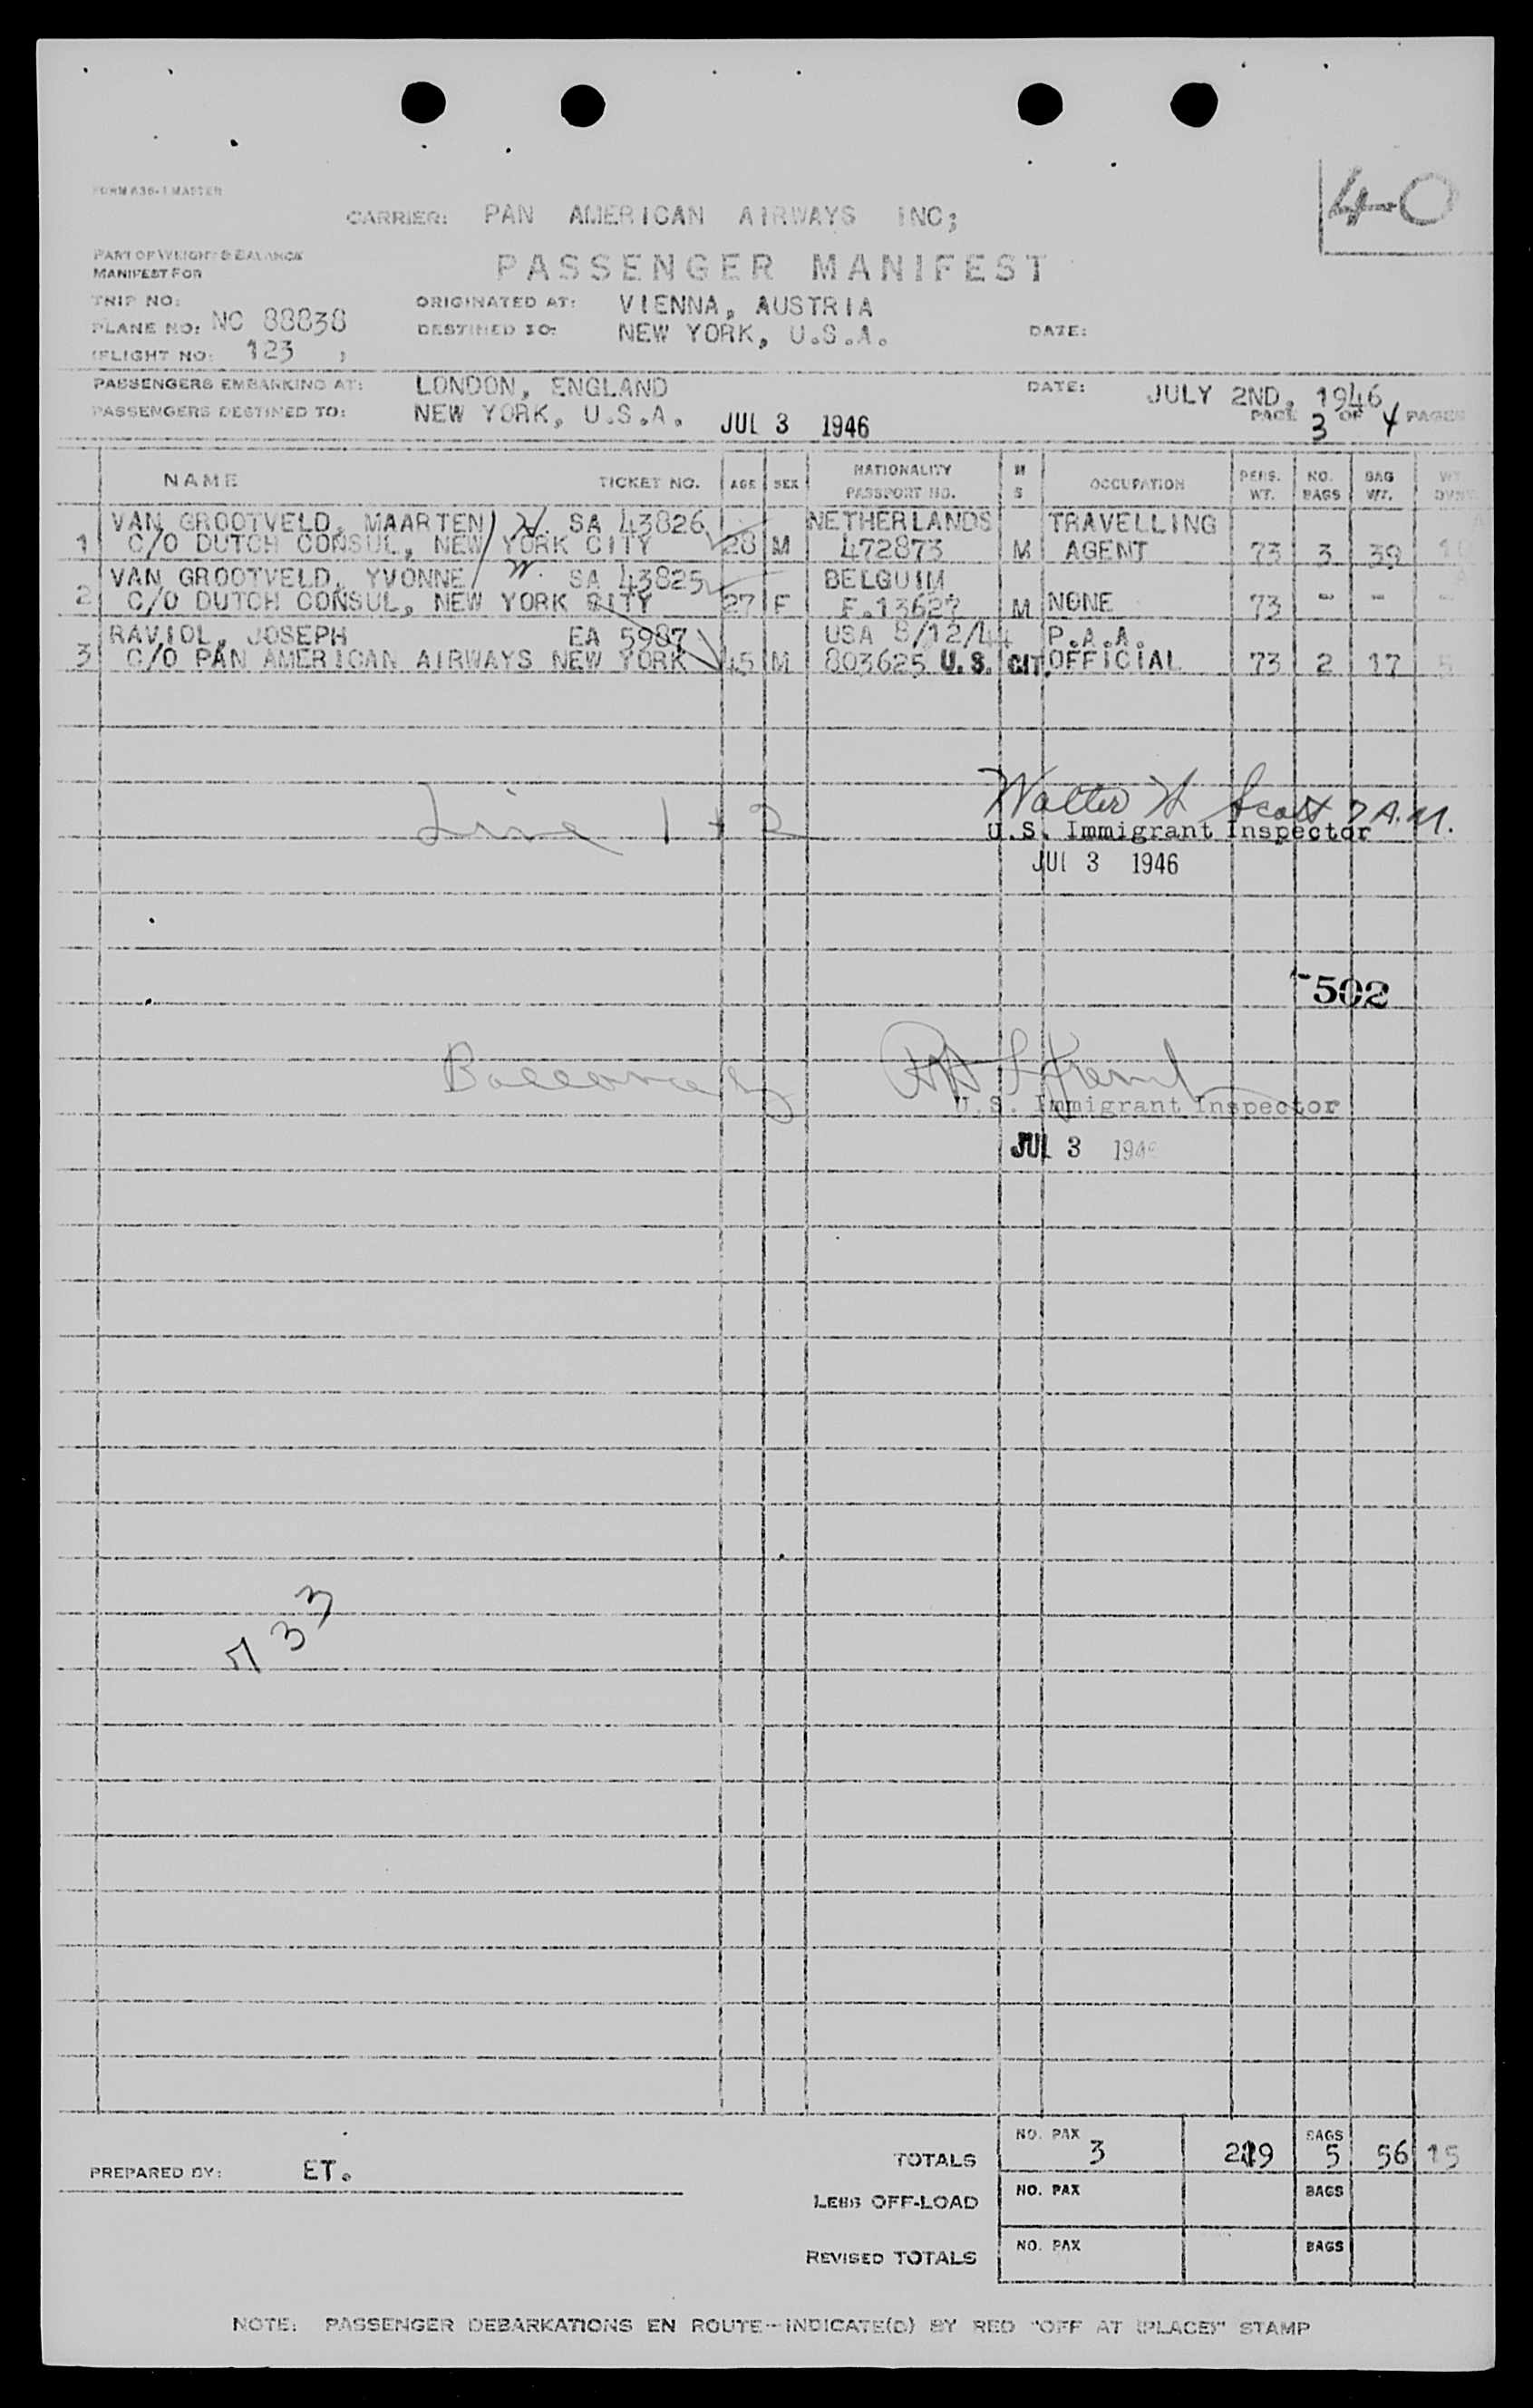 FORM 636-1 MASTER
40
CARRIER: PAN AMERICAN AIRWAYS INC;
PART OF WEIGHT & BALANCE
MANIFEST FOR
PASSENGER MANIFEST
TRIP NO:
ORIGINATED AT: VIENNA, AUSTRIA
PLANE NO: NC 88838
DESTINED TO: NEW YORK, U.S.A. DATE:
(FLIGHT NO: 123 )
PASSENGERS EMBARKING AT: LONDON, ENGLAND DATE: JULY 2ND, 1946
PASSENGERS DESTINED TO: NEW YORK, U.S.A. JUL 3 1946 PAGE 3 OF 4 PAGES
NAME TICKET NO. AGE SEX NATIONALITY PASSPORT NO. M S OCCUPATION PERS. WT. NO. BAGS BAG WT. WT
VAN GROOTVELD, MAARTEN H. SA 43826 NETHERLANDS TRAVELLING
1 C/O DUTCH CONSUL, NEW YORK CITY 28 M 472873 M AGENT 73 3 39 10
VAN GROOTVELD, YVONNE W. SA 43825 BELGUIM
2 C/O DUTCH CONSUL, NEW YORK CITY 27 F F.13627 M NONE 73 - - -
RAVIOL, JOSEPH EA 5987 USA 8/12/44 P.A.A.
3 C/O PAN AMERICAN AIRWAYS NEW YORK 45 M 803625 U.S. CIT. OFFICIAL 73 2 17 5
Line 1 + 2 Walter H Scott 7 A.M.
U.S. Immigrant Inspector
JUL 3 1946
-502
U.S. Immigrant Inspector
JUL 3 1946
733
PREPARED BY: ET.
TOTALS NO. PAX 3 219 BAGS 5 56 15
LESS OFF-LOAD NO. PAX BAGS
REVISED TOTALS NO. PAX BAGS
NOTE: PASSENGER DEBARKATIONS EN ROUTE--INDICATE(D) BY RED "OFF AT (PLACE)" STAMP